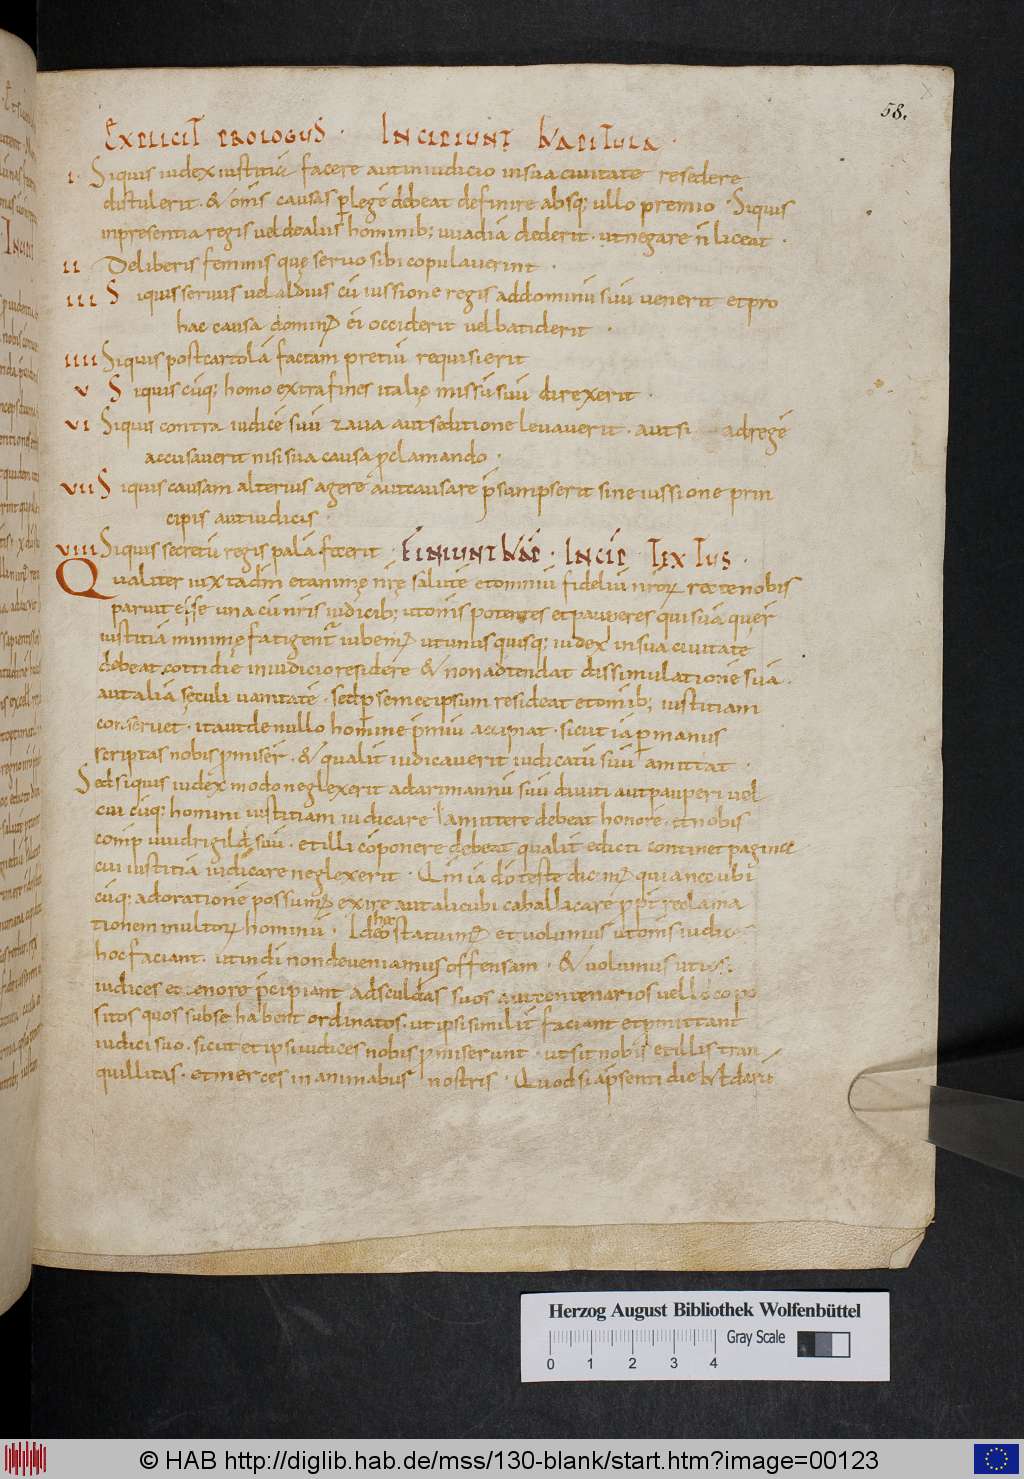 58.
EXPLICIT PROLOGUS · INCIPIUNT KAPITULA ·
I · Siquis iudex iustitiā facere aut in iudicio in sua civitate resedere
distulerit · & om̄s causas p̲ legē debeat definire absq; ullo premio · Siquis
in presentia regis vel de alius hominib; wadiā dederit · ut negare n̄ liceat ·
II De liberis feminis quę servo sibi copulaverint ·
III Siquis servus vel aldius cū iussione regis ad dominū suū venerit et pro
hac causa domin᾽ ei occiderit vel batiderit ·
IIII Siquis post cartolā factam pretiū requisierit
V Siquis cūq; homo extra fines italię missū suū direxerit ·
VI Siquis contra iudicē suū zava aut seditione levaverit · aut si ad regē
accusaverit nisi sua causa p̲clamando ·
VII Siquis causam alterius agere aut causare p̄sumpserit sine iussione prin
cipis aut iudicis ·
VIII Siquis secretū regis palā fecerit · FINIUNT KAP̄ · INCIP̄ TEXTUS ·
Qualiter iuxta dn̄i et animę nr̄ę salutē et omniū fideliū nr̄oꝝ recte nobis
paruit e͞e se una cū nr̄is iudicib; ut om̄is potentes et pauperes qui suā quer̄
iustitiā minimę fatigent᾽ iubem᾽ ut unusquisq; iudex in sua civitatę
debeat cottidię in iudicio residere & non adtendat dissimulationē suā ·
aut aliā sęculi vanitatē · sed p̲ semet ipsum resideat et om̄ib; iustitiam
conservet · ita ut de nullo homine p̄miū accipiat · sicut iā p̲ manus
scriptas nobis p̲miser̄ · & qualit̄ iudicaverit iudicatū suū amittat ·
Sed siquis iudex modo neglexerit ad arimannū suū diviti aut pauperi vel
cui cūq; homini iustitiam iudicare amittere debeat honorē · et nobis
conp̄ widrigild suū · et illi cōponere debeat qualit̄ edicti continet pagina
cui iustitiā iudicare neglexerit · Qm̄ iā dō teste dicim᾽ quia nec ubi
cūq; ad orationē possum᾽ exire aut alicubi caballacare p̲pt̄ reclama
tionem multoꝝ hominū · Ideo hoc statuim᾽ et volumus ut om̄is iudic
hoc faciant · ut in dī non deveniamus offensam · & volumus ut
iudices et tenorē p̄cipiant ad sculdais suos aut centenarios vel loco po
sitos quos sub se habent ordinatos · ut ipsi similit̄ faciant et p̲mittant
iudici suo · sicut et ipsi iudices nobis p̲miserunt · ut sit nobis et illis tran
quillitas · et merces in animabus nostris · Quod si ap̄senti die kl̄darū
Herzog August Bibliothek Wolfenbüttel
Gray Scale
0 1 2 3 4
© HAB http://diglib.hab.de/mss/130-blank/start.htm?image=00123